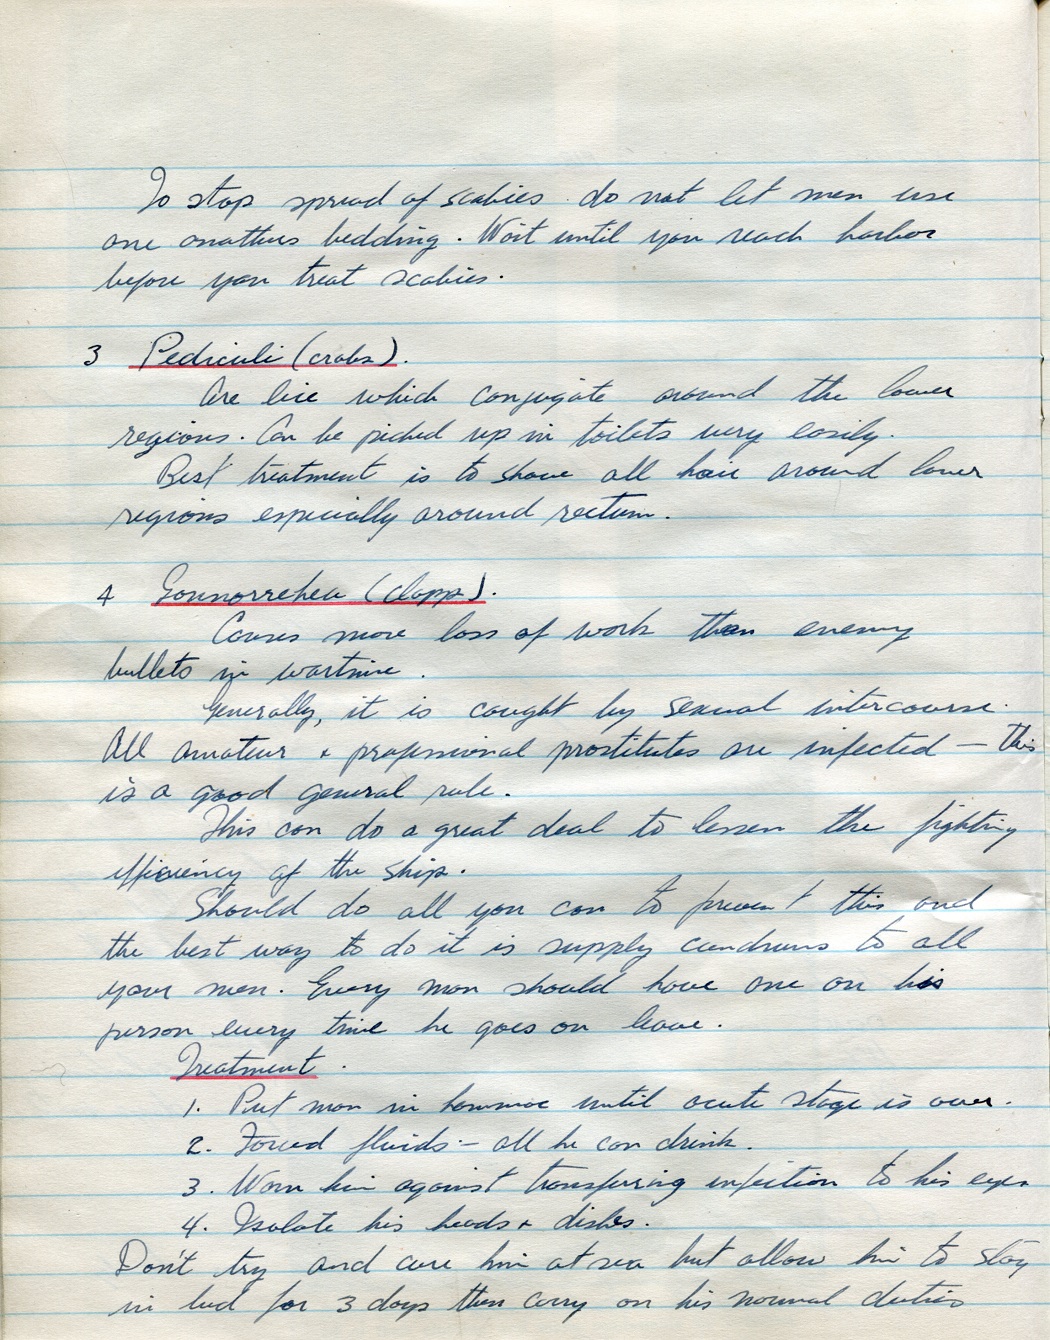 To stop spread of scabies do not let men use
one anothers bedding. Wait until you reach harbor
before you treat scabies.
3 Pediculi (crabs).
Are lice which conjugate around the lower
regions. Can be picked up in toilets very easily.
Best treatment is to shave all hair around lower
regions especially around rectum.
4 Gonnorrehea (Clapp).
Causes more loss of work than enemy
bullets in wartime.
Generally, it is caught by sexual intercourse.
All amateur + professional prostitutes are infected — this
is a good general rule.
This can do a great deal to lessen the fighting
efficiency of the ship.
Should do all you can to prevent this and
the best way to do it is supply cundrums to all
your men. Every man should have one on his
person every time he goes on leave.
Treatment.
1. Put man in hammoc until acute stage is over.
2. Forced fluids - all he can drink.
3. Warn him against transferring infection to his eyes
4. Isolate his heads + dishes.
Don't try and cure him at sea but allow him to stay
in bed for 3 days then carry on his normal duties